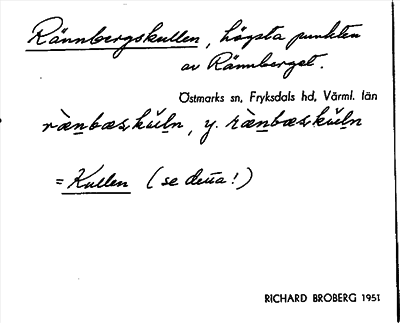 Rännbergskullen, högsta punkten
av Rännberget.
Östmarks sn, Fryksdals hd, Värml. län
ræ̀nbæskŭln, y. ræ̀nbæskŭln
= Kullen (se detta!)
RICHARD BROBERG 1951